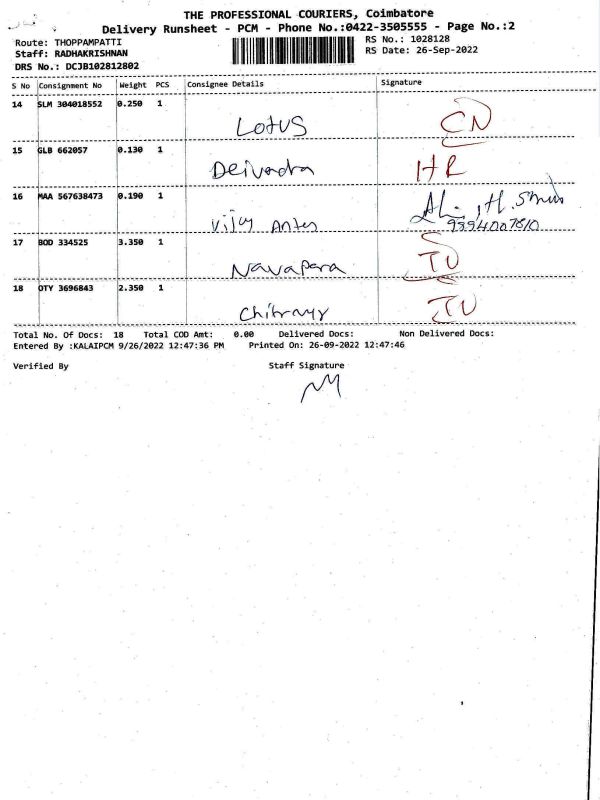 THE PROFESSIONAL COURIERS, Coimbatore
Delivery Runsheet - PCM - Phone No.:0422-3505555 - Page No.:2
Route: THOPPAMPATTI
RS No.: 1028128
Staff: RADHAKRISHNAN
RS Date: 26-Sep-2022
DRS No.: DCJB102812802
S No Consignment No Weight PCS Consignee Details Signature
14 SLM 304018552 0.250 1
Lotus CN
15 GLB 662057 0.130 1
HR
16 MAA 567638473 0.190 1
Vijay
9894007810
17 BOD 334525 3.350 1
Navapara
18 OTY 3696843 2.350 1
Total No. Of Docs: 18 Total COD Amt: 0.00 Delivered Docs: Non Delivered Docs:
Entered By :KALAIPCM 9/26/2022 12:47:36 PM Printed On: 26-09-2022 12:47:46
Verified By Staff Signature